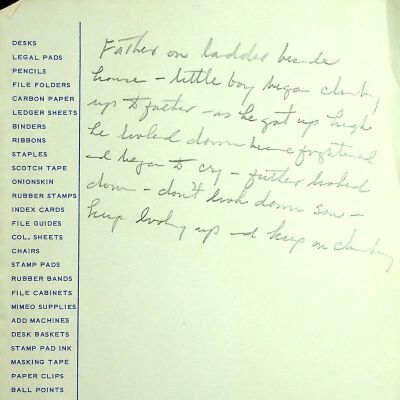 DESKS
LEGAL PADS
PENCILS
FILE FOLDERS
CARBON PAPER
LEDGER SHEETS
BINDERS
RIBBONS
STAPLES
SCOTCH TAPE
ONIONSKIN
RUBBER STAMPS
INDEX CARDS
FILE GUIDES
COL. SHEETS
CHAIRS
STAMP PADS
RUBBER BANDS
FILE CABINETS
MIMEO SUPPLIES
ADD MACHINES
DESK BASKETS
STAMP PAD INK
MASKING TAPE
PAPER CLIPS
BALL POINTS
Father on ladder beside
house - little boy began climbing
up to father - as he got up high
he looked down became frightened
and began to cry - father looked
down - don't look down son -
keep looking up and keep on climbing